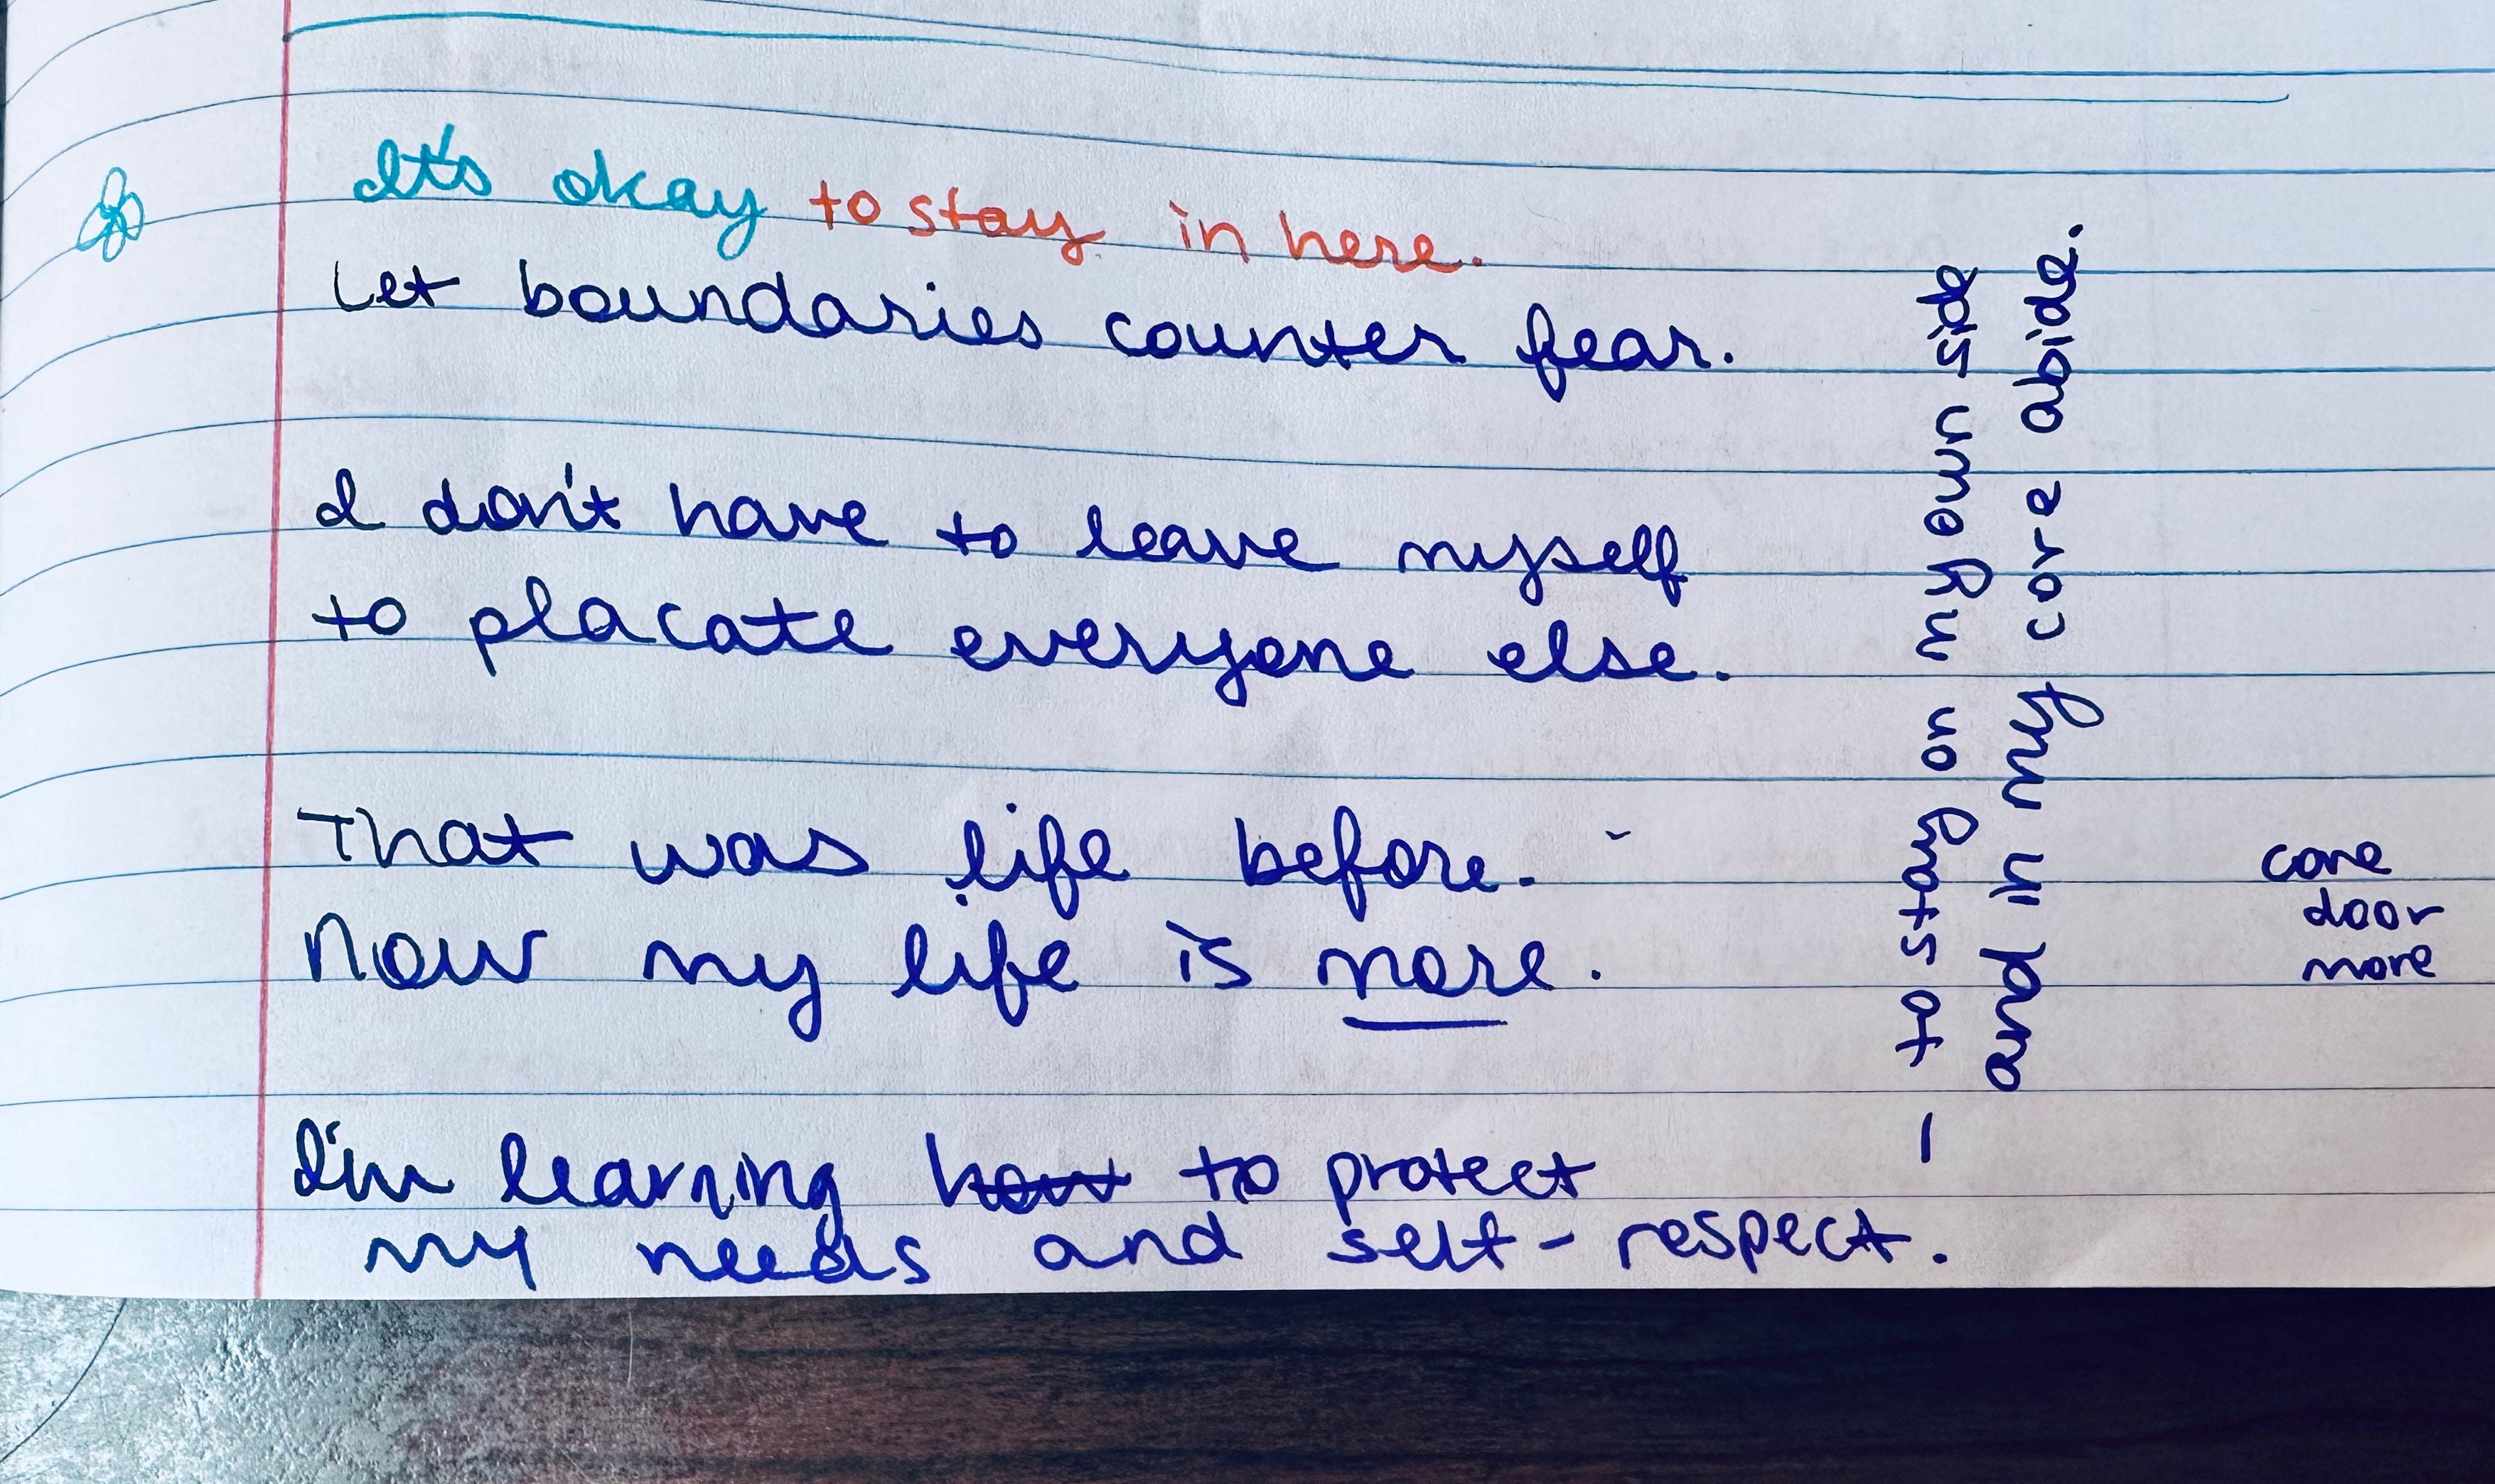 It's okay to stay in here.
Let boundaries counter fear.
I don't have to leave myself
to placate everyone else.
That was life before.
Now my life is more.
I'm learning how to protect
my needs and self-respect.
– to stay on my own side
and in my core abide.
core
door
more